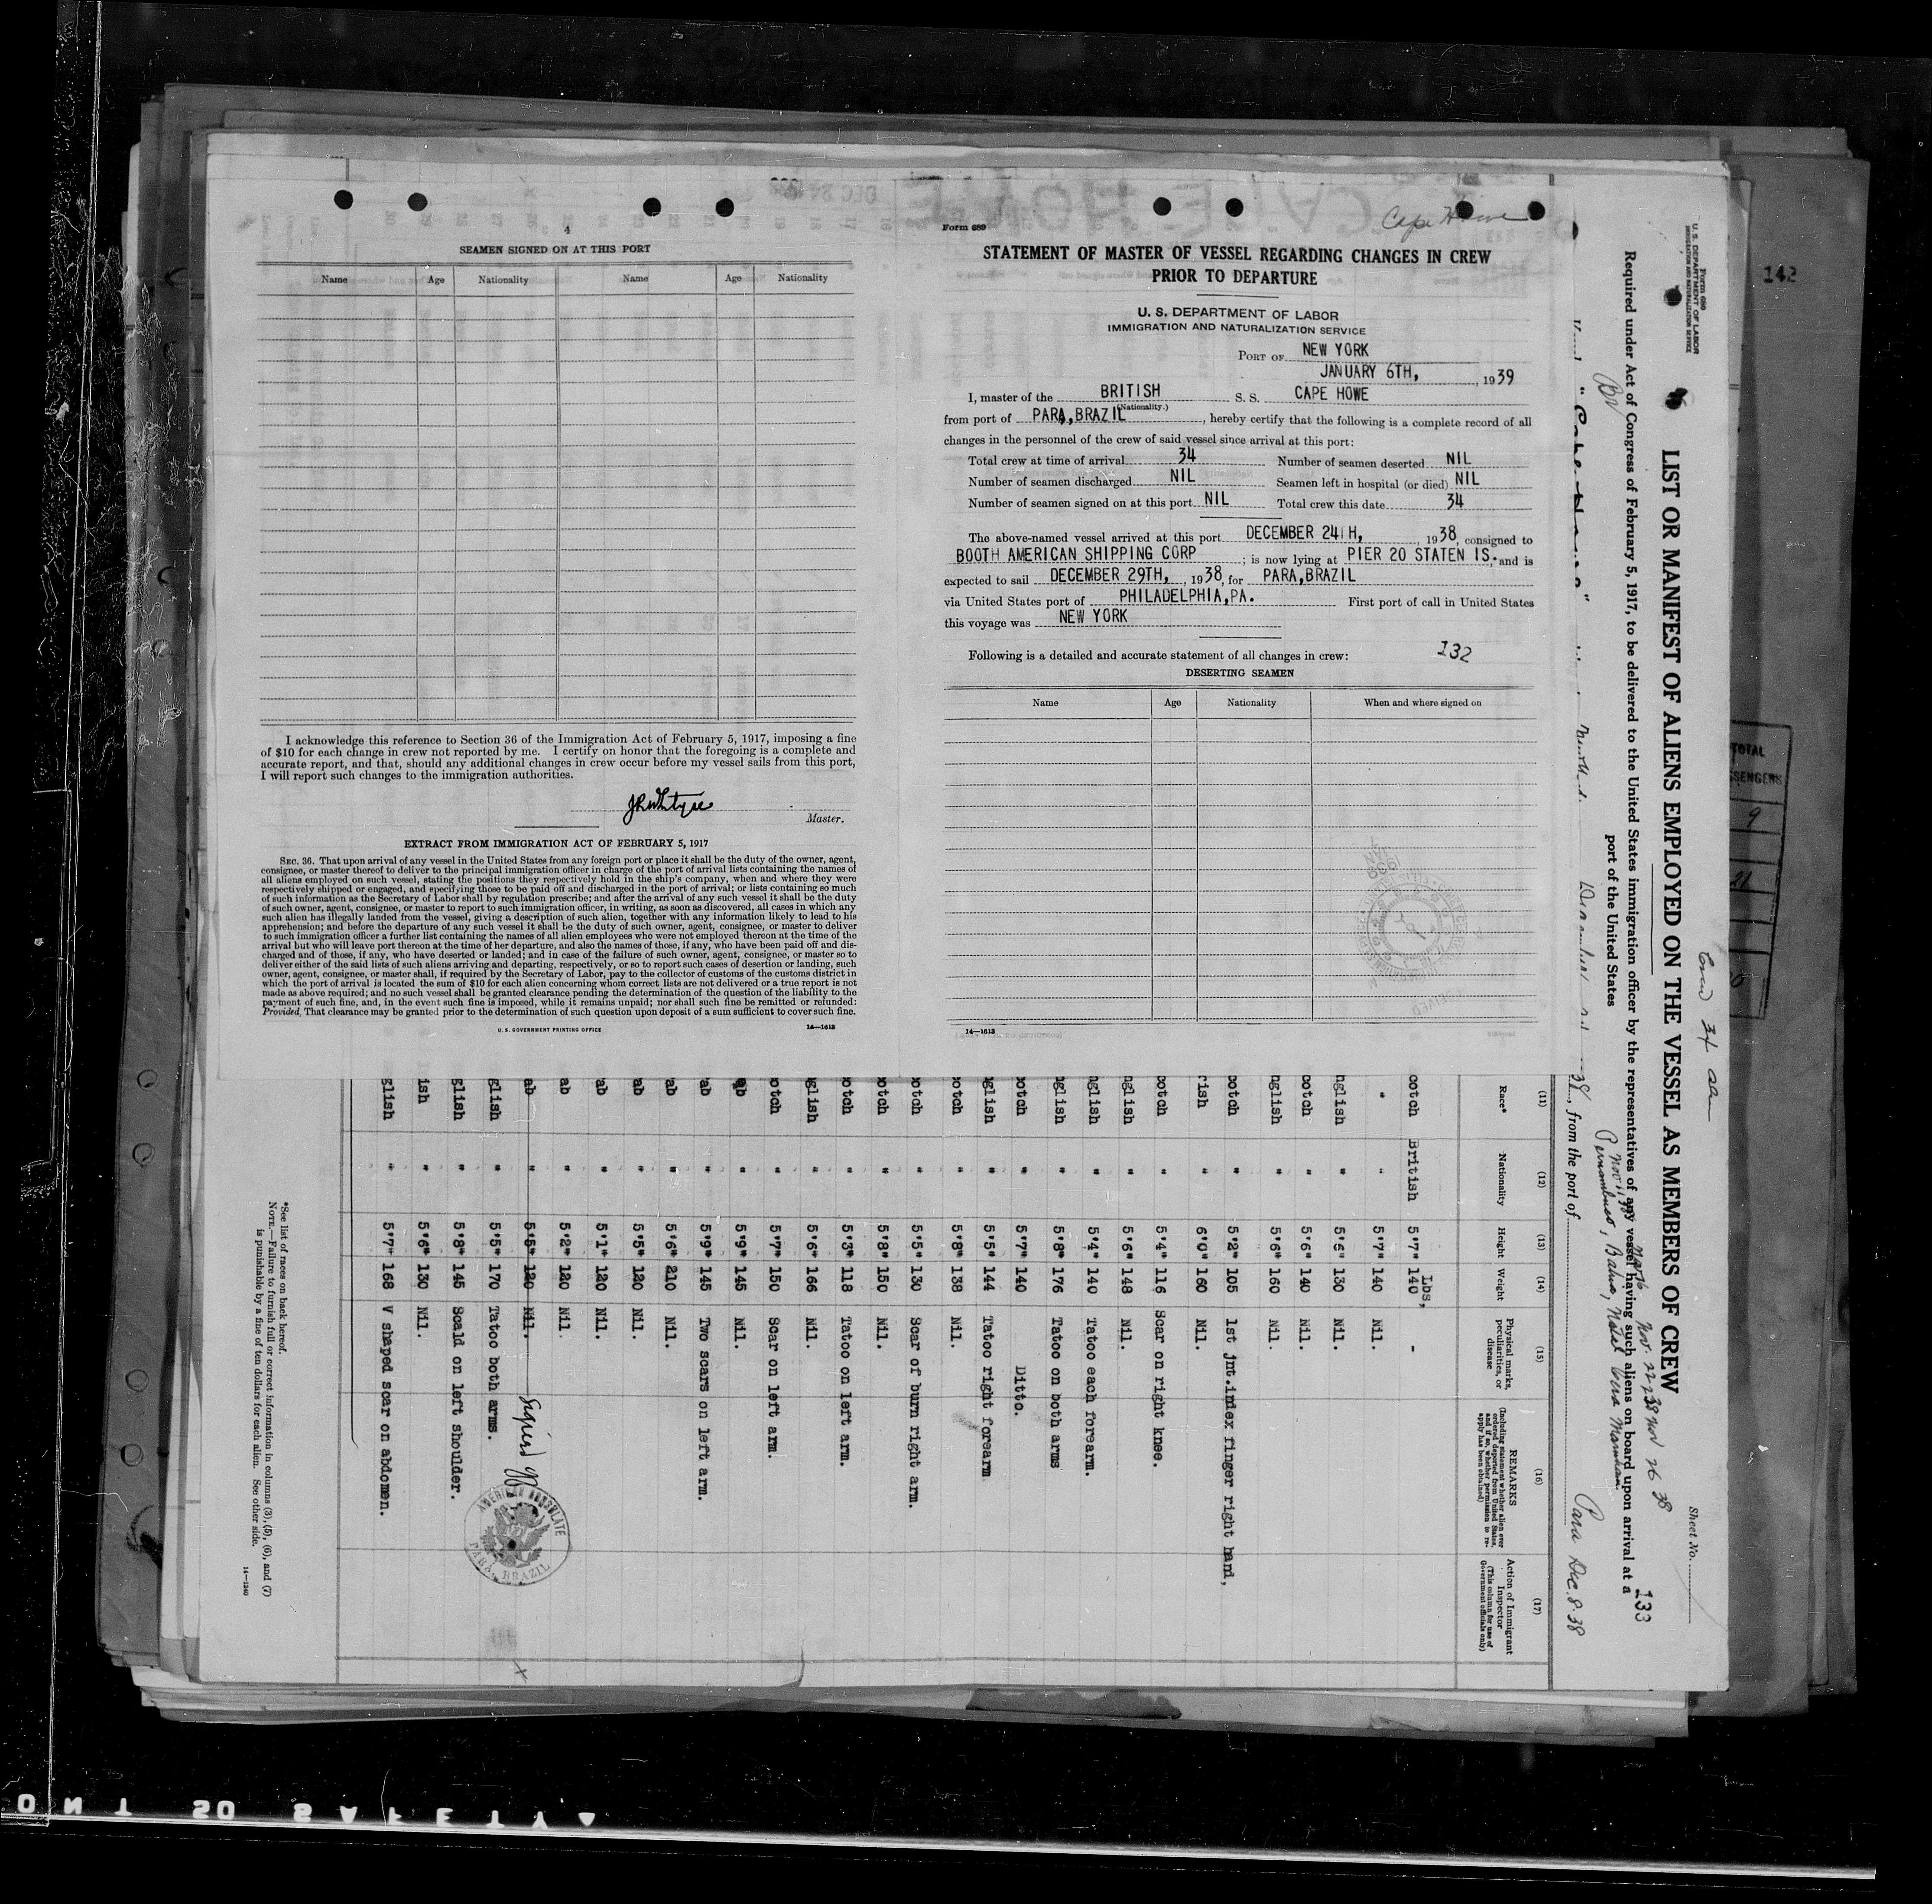 4
SEAMEN SIGNED ON AT THIS PORT
Name Age Nationality Name Age Nationality
I acknowledge this reference to Section 36 of the Immigration Act of February 5, 1917, imposing a fine
of $10 for each change in crew not reported by me. I certify on honor that the foregoing is a complete and
accurate report, and that, should any additional changes in crew occur before my vessel sails from this port,
I will report such changes to the immigration authorities.
Master.
EXTRACT FROM IMMIGRATION ACT OF FEBRUARY 5, 1917
SEC. 36. That upon arrival of any vessel in the United States from any foreign port or place it shall be the duty of the owner, agent,
consignee, or master thereof to deliver to the principal immigration officer in charge of the port of arrival lists containing the names of
all aliens employed on such vessel, stating the positions they respectively hold in the ship's company, when and where they were
respectively shipped or engaged, and specifying those to be paid off and discharged in the port of arrival; or lists containing so much
of such information as the Secretary of Labor shall by regulation prescribe; and after the arrival of any such vessel it shall be the duty
of such owner, agent, consignee, or master to report to such immigration officer, in writing, as soon as discovered, all cases in which any
such alien has illegally landed from the vessel, giving a description of such alien, together with any information likely to lead to his
apprehension; and before the departure of any such vessel it shall be the duty of such owner, agent, consignee, or master to deliver
to such immigration officer a further list containing the names of all alien employees who were not employed thereon at the time of the
arrival but who will leave port thereon at the time of her departure, and also the names of those, if any, who have been paid off and dis-
charged and of those, if any, who have deserted or landed; and in case of the failure of such owner, agent, consignee, or master so to
deliver either of the said lists of such aliens arriving and departing, respectively, or so to report such cases of desertion or landing, such
owner, agent, consignee, or master shall, if required by the Secretary of Labor, pay to the collector of customs of the customs district in
which the port of arrival is located the sum of $10 for each alien concerning whom correct lists are not delivered or a true report is not
made as above required; and no such vessel shall be granted clearance pending the determination of the question of the liability to the
payment of such fine, and, in the event such fine is imposed, while it remains unpaid; nor shall such fine be remitted or refunded:
Provided, That clearance may be granted prior to the determination of such question upon deposit of a sum sufficient to cover such fine.
U. S. GOVERNMENT PRINTING OFFICE 14—1613
Form 689
Cape Howe
STATEMENT OF MASTER OF VESSEL REGARDING CHANGES IN CREW
PRIOR TO DEPARTURE
U. S. DEPARTMENT OF LABOR
IMMIGRATION AND NATURALIZATION SERVICE
PORT OF NEW YORK
JANUARY 6TH, 1939
I, master of the BRITISH S. S. CAPE HOWE
(Nationality.)
from port of PARA,BRAZIL, hereby certify that the following is a complete record of all
changes in the personnel of the crew of said vessel since arrival at this port:
Total crew at time of arrival 34 Number of seamen deserted NIL
Number of seamen discharged NIL Seamen left in hospital (or died) NIL
Number of seamen signed on at this port NIL Total crew this date 34
The above-named vessel arrived at this port DECEMBER 24TH, 1938, consigned to
BOOTH AMERICAN SHIPPING CORP; is now lying at PIER 20 STATEN IS. and is
expected to sail DECEMBER 29TH, 1938, for PARA,BRAZIL
via United States port of PHILADELPHIA,PA. First port of call in United States
this voyage was NEW YORK
Following is a detailed and accurate statement of all changes in crew: 132
DESERTING SEAMEN
Name Age Nationality When and where signed on
14—1613
Form 686
U. S. DEPARTMENT OF LABOR
IMMIGRATION AND NATURALIZATION SERVICE
Sheet No.
LIST OR MANIFEST OF ALIENS EMPLOYED ON THE VESSEL AS MEMBERS OF CREW
133
Required under Act of Congress of February 5, 1917, to be delivered to the United States immigration officer by the representatives of any vessel having such aliens on board upon arrival at a
port of the United States
Pernambuco, Bahia, Natal
, from the port of Para Dec. 8. 38
(11) (12) (13) (14) (15) (16) (17)
Race* Nationality Height Weight Physical marks, peculiarities, or disease REMARKS (Including statement whether alien ever ordered deported from United States, and if so, whether permission to reapply has been obtained) Action of Immigrant Inspector (This column for use of Government officials only)
Lbs,
cotch British 5'7" 140 -
" " 5'7" 140 Nil.
nglish " 5'6" 130 Nil.
cotch " 5'6" 140 Nil.
nglish " 5'6" 160 Nil.
cotch " 5'2" 105 1st jnt.index finger right hand,
rish " 6'0" 160 Nil.
cotch " 5'4" 116 Scar on right knee.
nglish " 5'6" 148 Nil.
nglish " 5'4" 140 Tatoo each forearm.
nglish " 5'8" 176 Tatoo on both arms
otch " 5'7" 140 Ditto.
nglish " 5'5" 144 Tatoo right forearm
otch " 5'8" 138 Nil.
cotch " 5'5" 130 Scar of burn right arm.
otch " 5'8" 150 Nil.
otch " 5'3" 118 Tatoo on left arm.
glish " 5'6" 166 Nil.
otch " 5'7" 150 Scar on left arm.
ab " 5'9" 145 Nil.
ab " 5'9" 145 Two scars on left arm.
ab " 5'6" 210 Nil.
ab " 5'5" 120 Nil.
ab " 5'1" 120 Nil.
ab " 5'2" 120 Nil.
ab " 5'5" 120 Nil.
glish " 5'5" 170 Tatoo both arms.
glish " 5'8" 145 Scald on left shoulder.
ish " 5'6" 130 Nil.
glish " 5'7" 168 V shaped scar on abdomen.
AMERICAN CONSULATE
PARA, BRAZIL
*See list of races on back hereof.
NOTE.—Failure to furnish full or correct information in columns (3), (5), (6), and (7)
is punishable by a fine of ten dollars for each alien. See other side.
14—1240
142
TOTAL
9
21
SAFETY